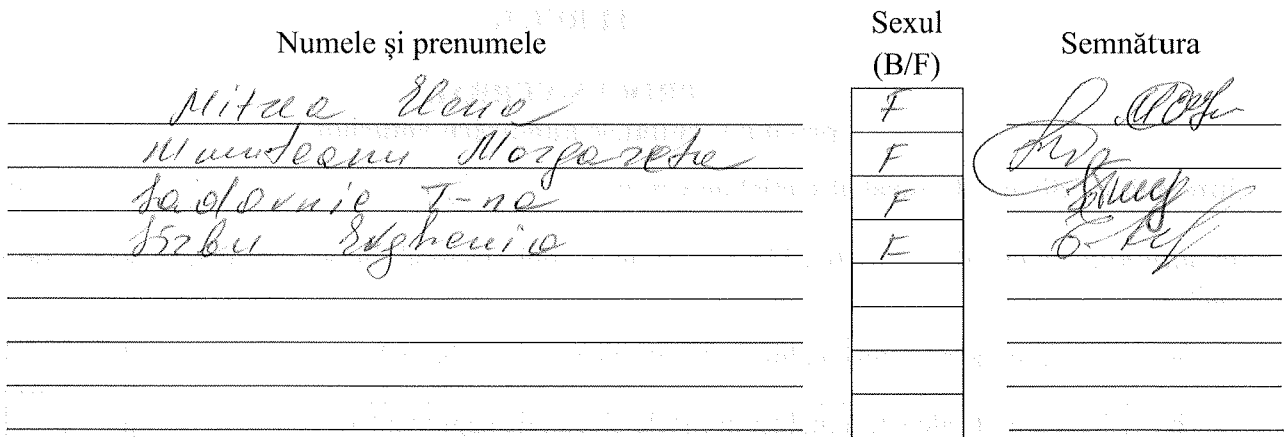 Numele și prenumele Sexul (B/F) Semnătura
Mitrea Elena F
Munteanu Margareta F
Sadovnic T-na F
Sîrbu Evghenia F